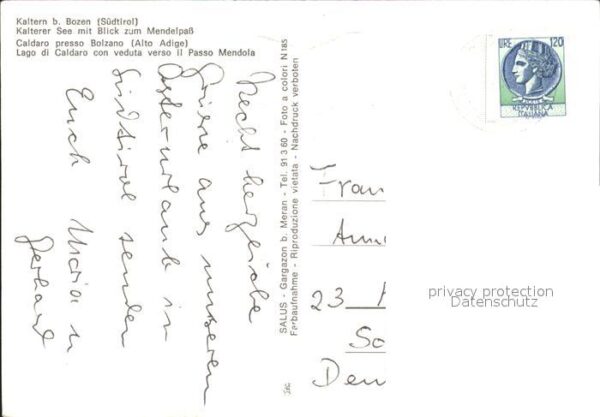 Kaltern b. Bozen (Südtirol)
Kalterer See mit Blick zum Mendelpaß
Caldaro presso Bolzano (Alto Adige)
Lago di Caldaro con veduta verso il Passo Mendola
Recht herzliche
Grüsse aus unserem
Osterurlaub in
Südtirol senden
Euch Maria u
Gerhard
SALUS - Gargazon b. Meran - Tel. 91 3 60 - Foto a colori N 185
Farbaufnahme - Riproduzione vietata - Nachdruck verboten
LIRE 120
REPVBBLICA
ITALIANA
Fran
Anne
23
So
Den
privacy protection
Datenschutz